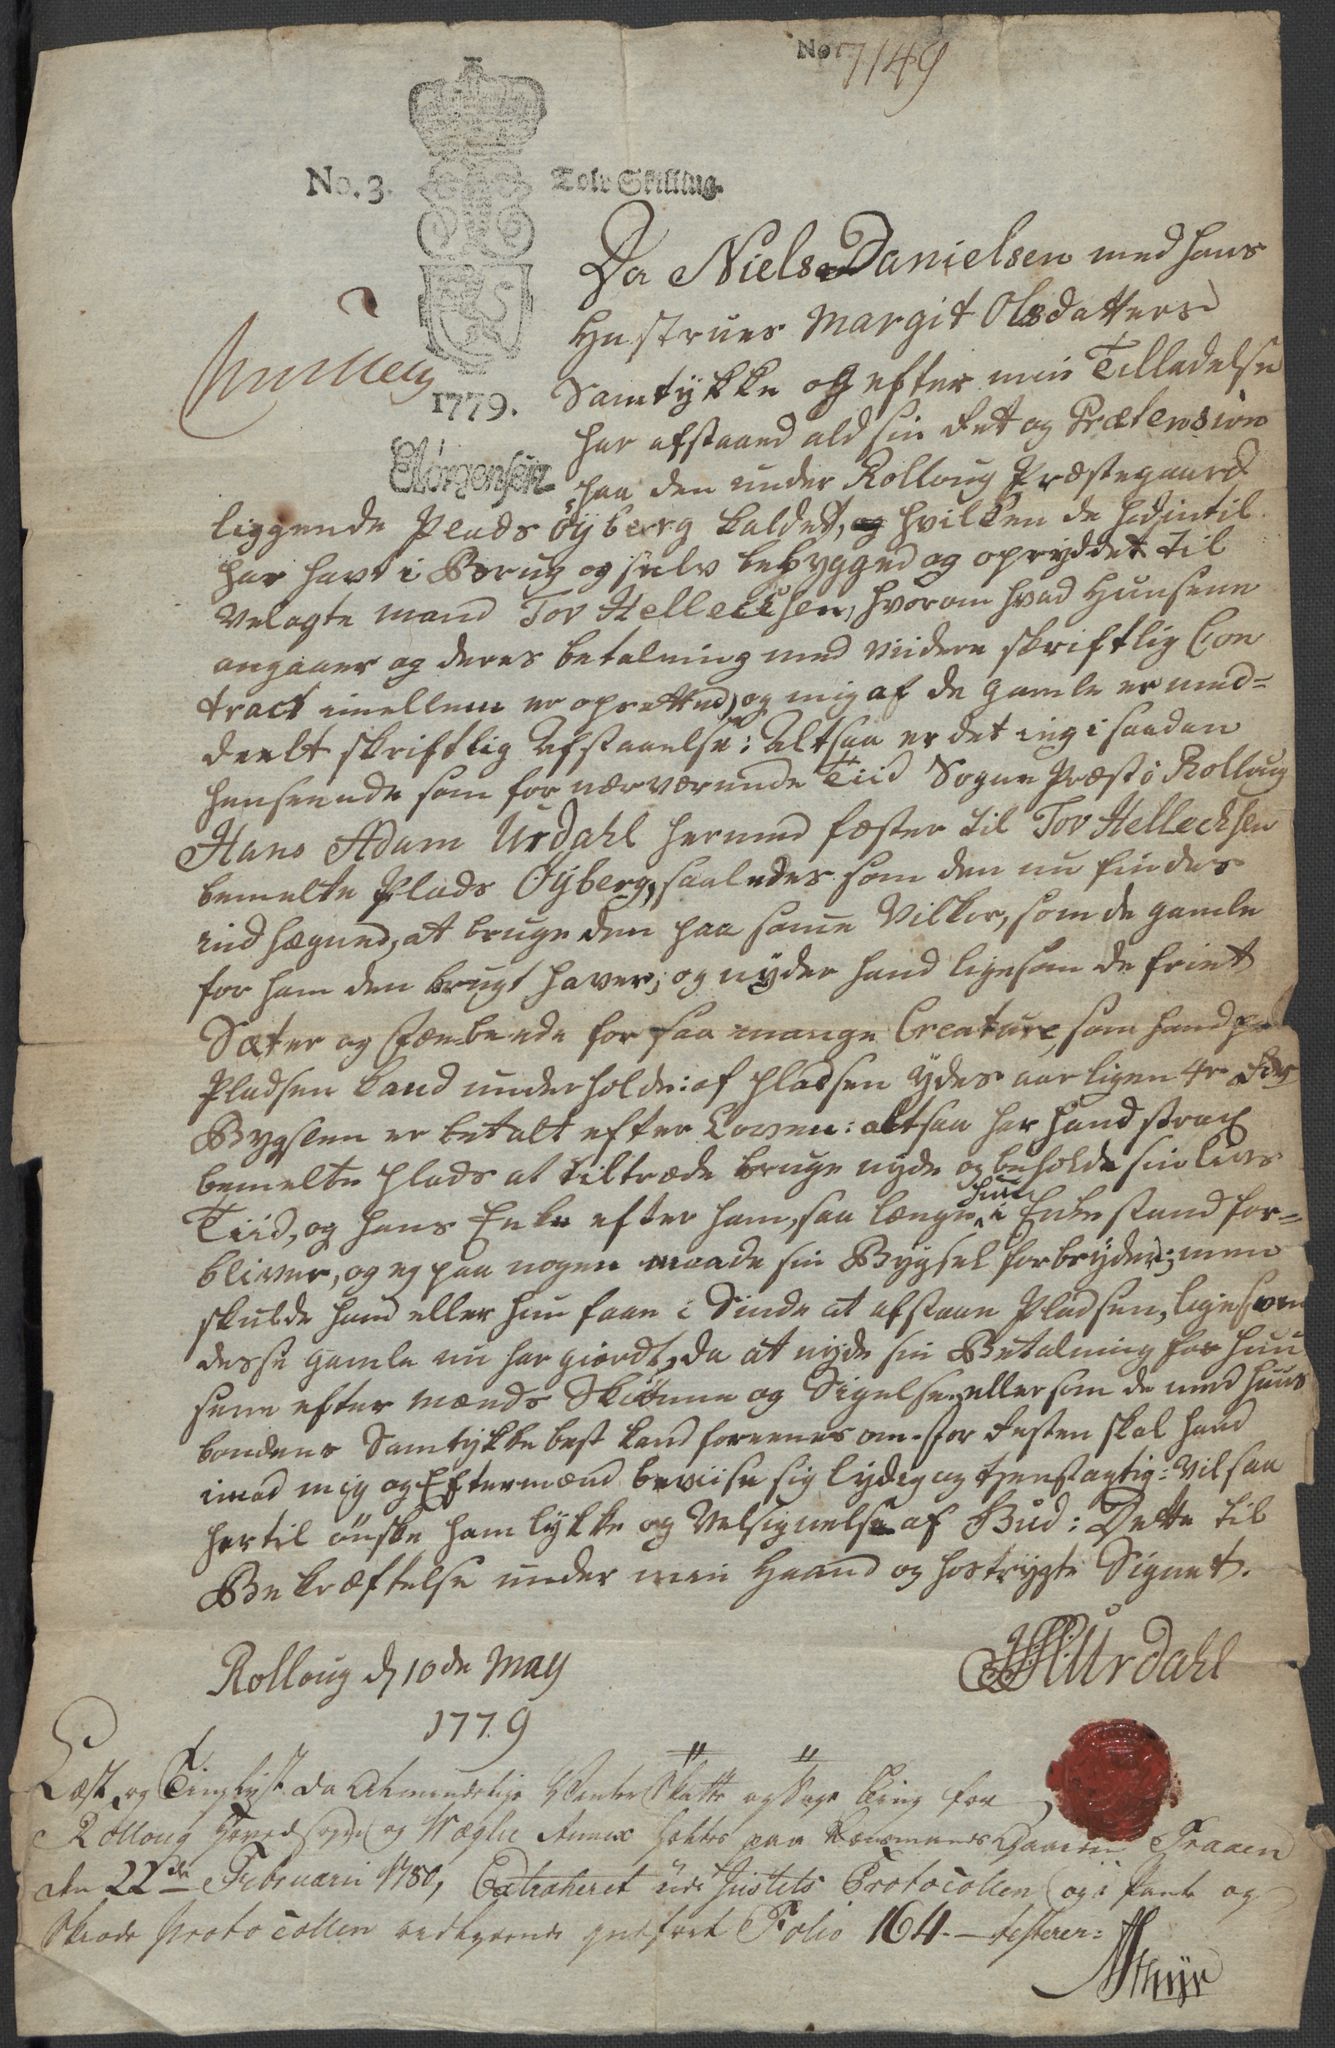 No. 7149
No. 3. Tolv Skilling.
1779.
Da Niels Danielsen med hans
Hustrues Margit Olsdatters
Samtykke og efter min Tilladelse
har afstaaed ald sin Ret og Prætension
paa den under Rolloug Præstegaard
liggende Plads Öyberg kaldet, og hvilken de hidintil
har havt i Brug og selv bebygged og opryddet til
Velagte Mand Tov Hellecksen, hvorom hvad Husene
angaaer og deres betalning med viidere skriftlig Con
tract imellem er opretted, og mig af de gamle er med=
deelt skriftlig Afstaaelse: Altsaa er det jeg i saadan
henseende som for nærværende Tiid Sogne Præst i Rolloug
Hans Adam Urdahl hermed fæster til Tov Hellecksen
bemelte Plads Öyberg, saaledes som den nu findes
indhægned, at bruge den paa samme Vilkor, som de gamle
for ham den brugt haver; og nyder hand ligesom de friet
Sæter og Fæebeede for saa mange Creature, som hand paa
Pladsen kand underholde: af pladsen ydes aarligen 4r
Bygslen er betalt efter Loven: altsaa har hand strax
bemelte plads at tiltræde bruge nyde og beholde sin livs
Tiid, og hans Enke efter ham, saa længe hun i Enkestand for=
bliver, og ey paa nogen maade sin Bygsel forbryder; men
skulde hand eller hun faae i Sinde at afstaae Pladsen, ligesom
desse gamle nu har giordt, da at nyde sin Betalning for Huu
sene efter Mænds Skiönne og Sigelse, eller som de med Huus
bondens Samtykke best kand foreenes om. for Resten skal hand
imod mig og Eftermænd beviise sig lydig og tienstagtig: Vil saa
hertil önske ham lykke og Velsignelse af Gud: Dette til
Bekræftelse under min Haand og hostrygte Signet.
Rolloug d 10de May
1779
HAUrdahl
Læst og Tinglyst da Almindelige Vinter Skatte og Sage Ting for
Rolloug Hovedsogn og Væglie Annex holtes paa Lensmands Gaarden Fraaen
den 22de Februarii 1780, Extraheret udi Justits Protocollen og i Pante og
Skiøde Protocollen vedkommende indført Folio 164. testerer:
AThyr